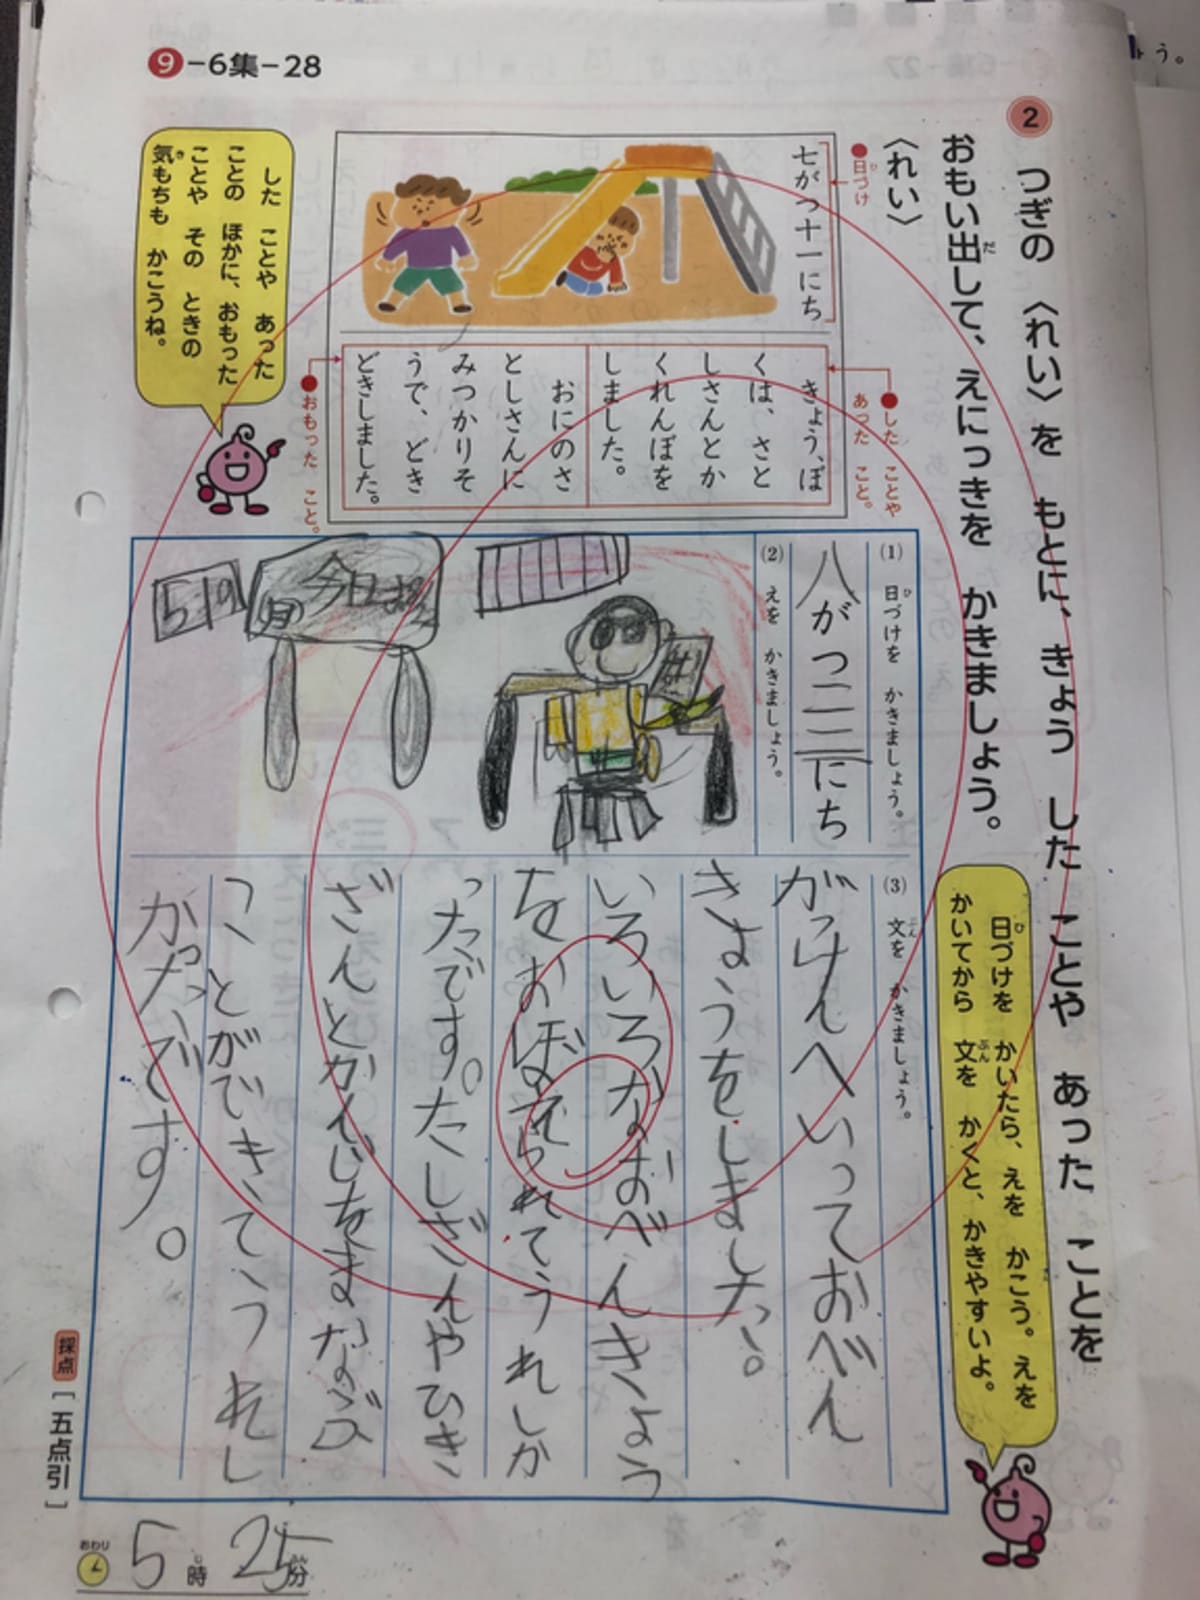 9-6集-28
2
つぎの 〈れい〉を もとに、きょう した ことや あった ことを
おもい出して、えにっきを かきましょう。
だ
〈れい〉
●日づけ
ひ
七がつ十一にち
●した ことや
あった こと。
きょう、ぼ
くは、さと
しさんとか
くれんぼを
しました。
おにのさ
としさんに
みつかりそ
うで、どき
どきしました。
●おもった こと。
した ことや あった
ことの ほかに、おもった
ことや その ときの
気もちも かこうね。
き
日づけを かいたら、えを かこう。えを
ひ
かいてから 文を かくと、かきやすいよ。
ぶん
(1) 日づけを かきましょう。
ひ
八がつ二三にち
(2) えを かきましょう。
今日
(3) 文を かきましょう。
ぶん
がっけんへいっておべん
きょうをしました。
いろいろなおべんきょう
をおぼえられてうれしか
ったです。たしざんやひき
ざんとかんじをまなぶ
ことができてうれし
かったです。
採点
[五点引]
おわり
5時25分
じ